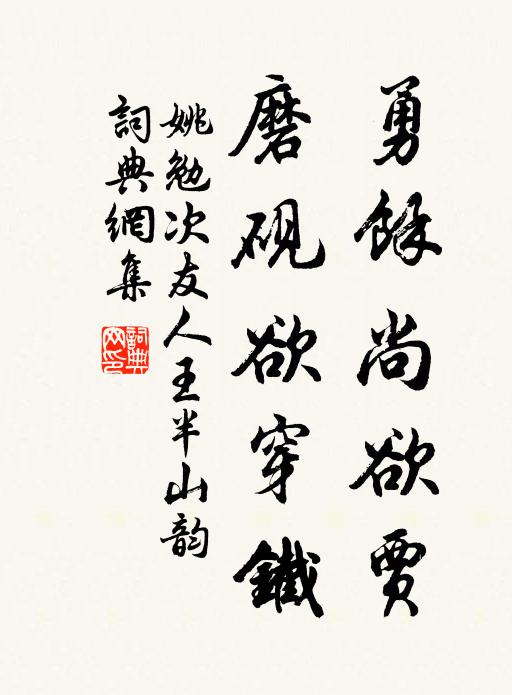 勇餘尚欲賈
磨硯欲穿鐵
姚勉次友人王半山韵
詞典網集
詞典网印